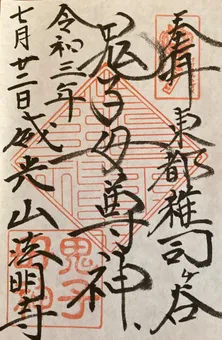 奉拝
東都雑司ヶ谷
鬼子母尊神
令和三年
七月廿二日威光山法明寺
鬼子